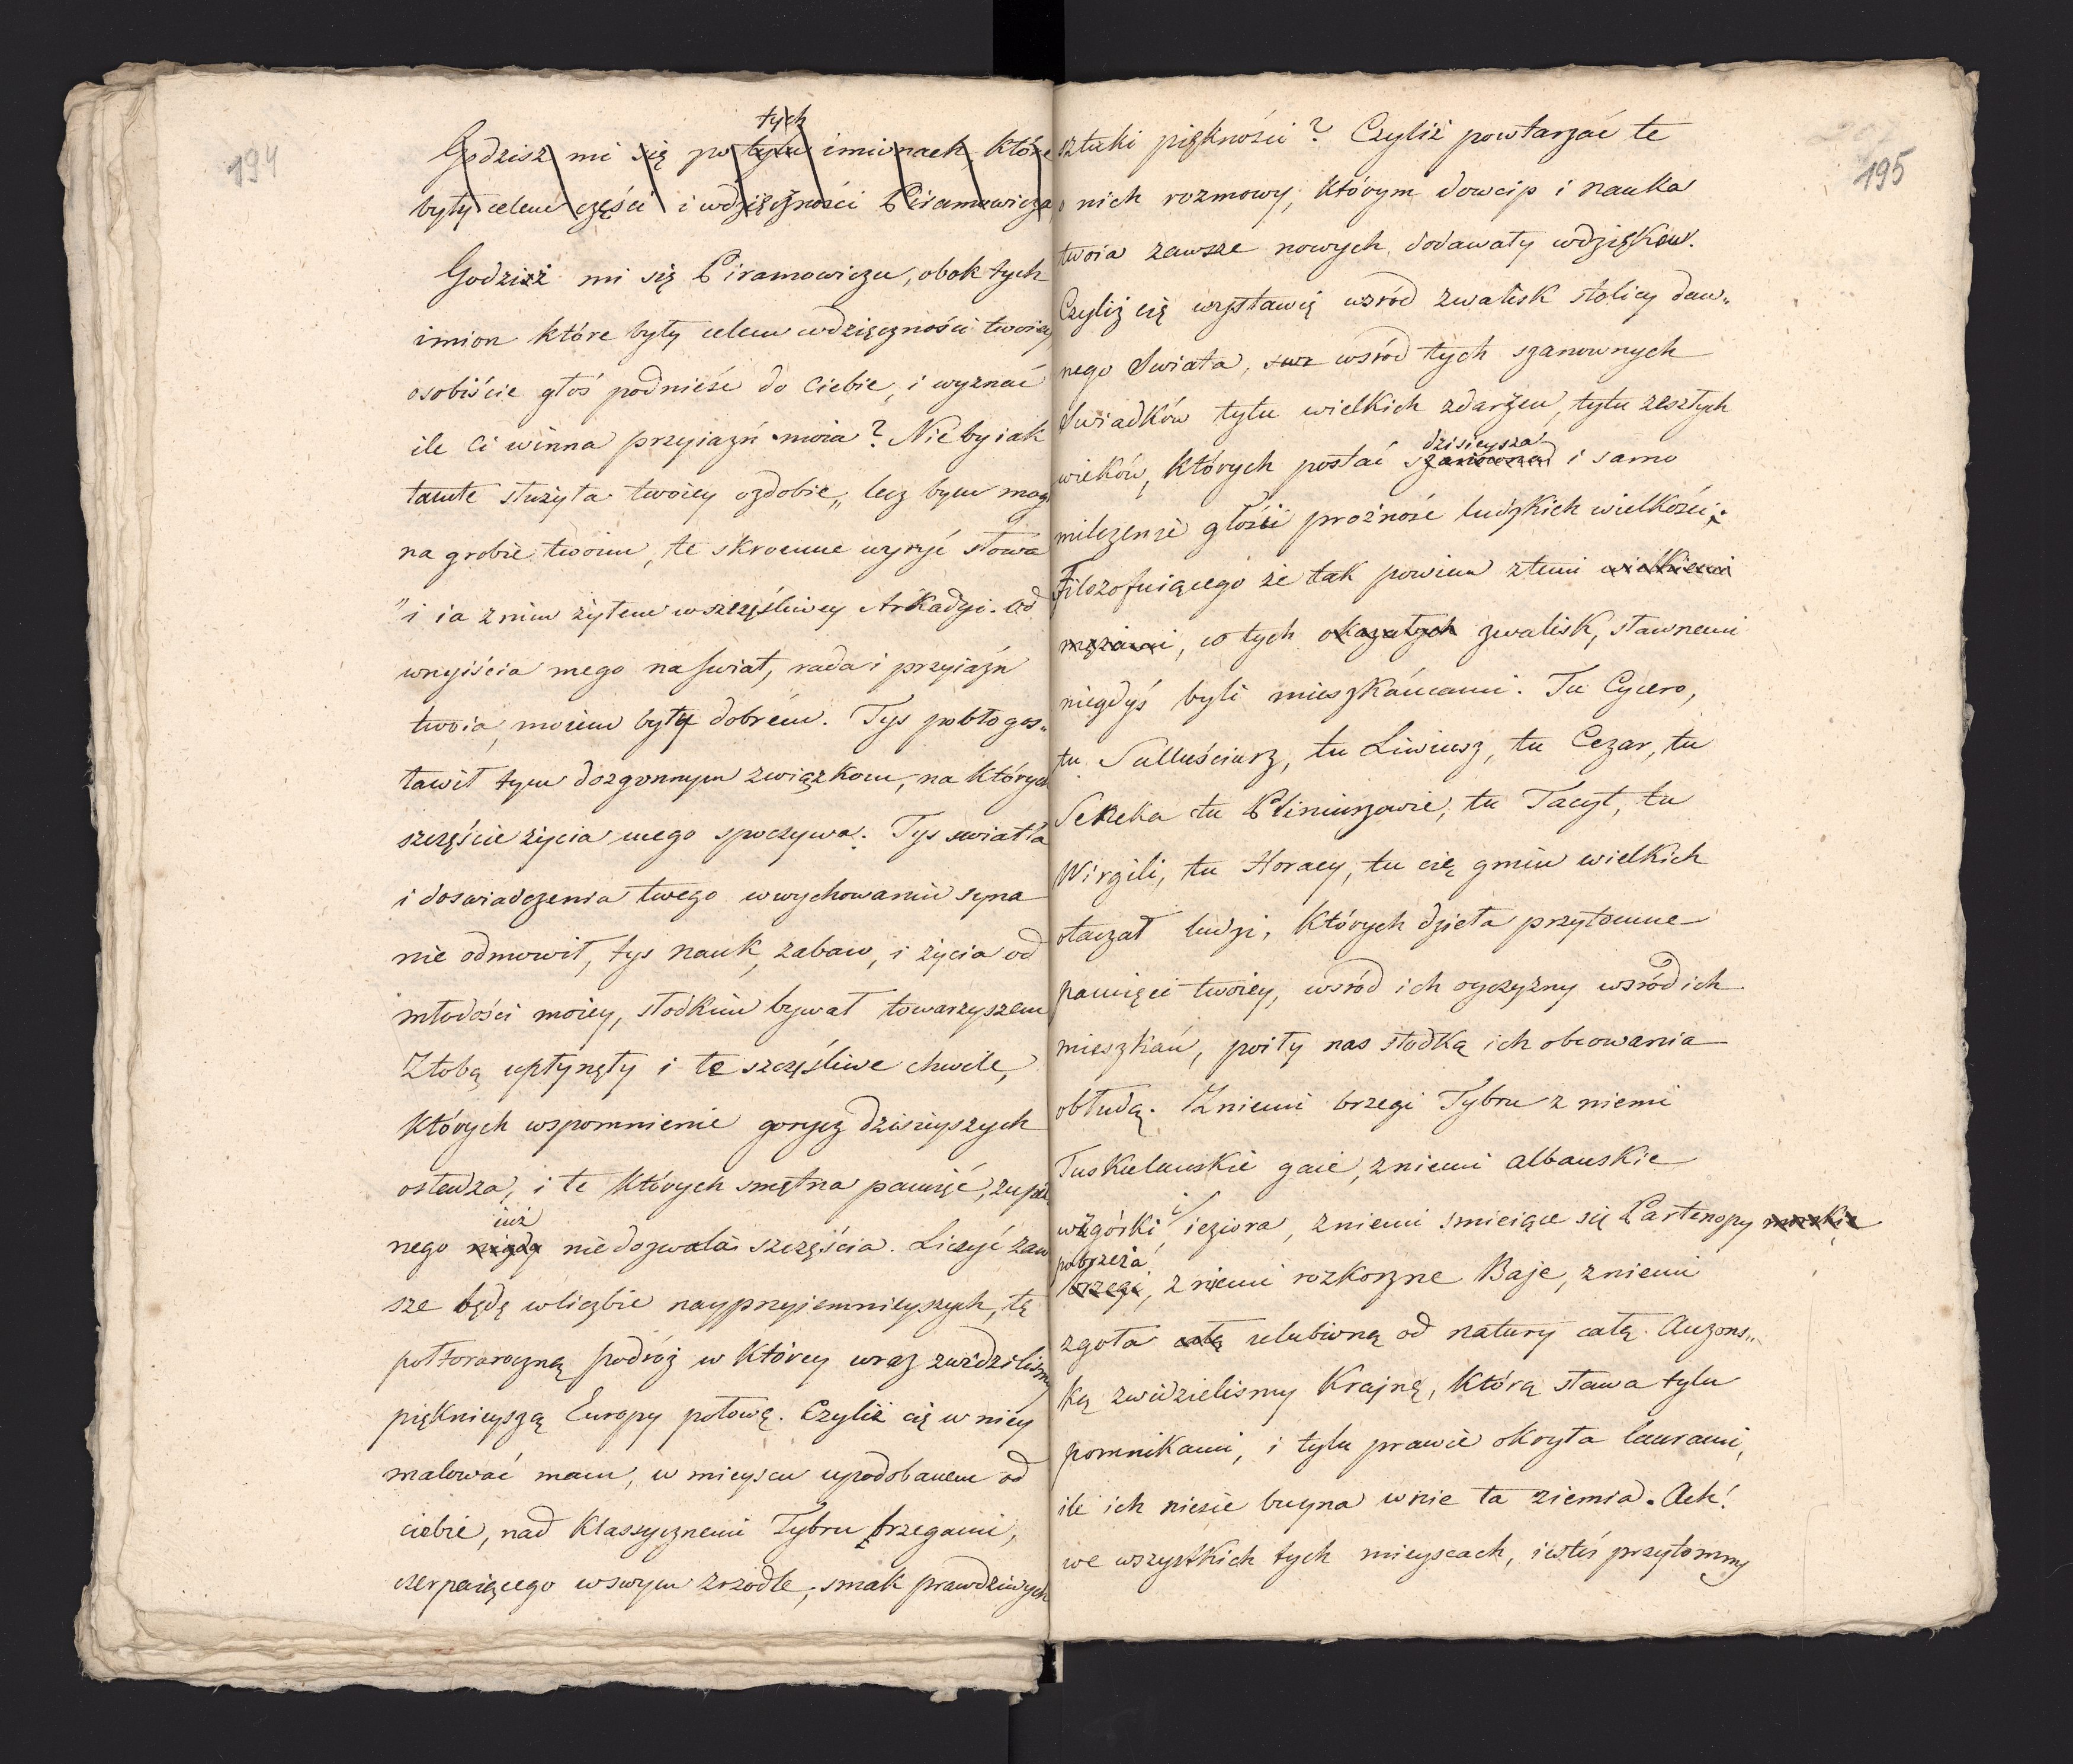 194
tych
Godzisz mi się po tylu imionach, które
były celem części i wdzięczności Piramowicza,
Godziż mi się Piramowiczu, obok tych
imion które były celem wdzięczności twoiey
osobiście głos podnieść do Ciebie, i wyznać
ile Ci winna przyiaźń moia? Nie by iak
tamte służyła twoiey ozdobie,, lecz bym mógł
na grobie twoim, te skromne wyryć słowa
"i ia z nim żyłem w szczęśliwey Arkadyi. Od
wnyiścia mego na świat, rada i przyiaźń
twoia, moiem były dobrem. Tys pobłogos„
ławił tym dozgonnym związkom, na których
szczęście życia mego spoczywa. Tys swiatła
i doswiadczenia twego w wychowaniu syna
nie odmowił, tys nauk, zabaw, i życia od
młodości moiey, słodkim bywał towarzyszem
Z tobą upłynęły i te szczęśliwe chwile,
których wspomnienie gorycz dzisieyszych
osładza, i te których smętna pamięć, zupeł
iuż
nego nigdy nie dozwala szczęścia. Liczyć zaw
sze będę w liczbie nayprzyjemnieyszych, tę
półtoraroczną podróż w którey wraz zwidzilismy
pięknieyszą Europy połowę. Czyliż cię w niey
malować mam, w mieyscu upodobanem od
ciebie, nad klassycznemi Tybru brzegami,
czerpaiącego w swym zrzodle, smak prawdziwych
195
sztuki piękności? Czyliż powtarzać te
o nich rozmowy, którym dowcip i nauka
twoia zawsze nowych dodawały wdzięków.
Czyliż cię wystawię wsród zwalisk stolicy daw„
nego Swiata, swr wsród tych szanownych
Swiadków tylu wielkich zdarzeń, tylu zeszłych
dzisieysza
wieków, których postać szanowna i samo
milczenie głosi prożność ludzkich wielkości;
Filozofuiącego że tak powiem z temi wielkiemi
mężami, co tych okazałych zwalisk, sławnemi
niegdyś byli mieszkańcami. Tu Cycero,
tu Sallusciusz, tu Liwiusz, tu Cezar, tu
Seneka tu Pliniuszowie, tu Tacyt, tu
Wirgili, tu Horacy, tu cię gmin wielkich
otaczał ludzi, których dzieła przytomne
pamięci twoiey, wsród ich oyczyzny wsród ich
mieszkań, poiły nas słodką ich obcowania
obłudą. Z niemi brzegi Tybru z niemi
Tuskulanskie gaie, z niemi albanskie
i
wzgórki, ieziora, z niemi smieiące się Partenopy morskie
pobrzeża
brzegi, z niemi rozkoszne Baje, z niemi
zgoła całą ulubioną od natury całą. Auzons„
ką zwidzielismy Krajnę, którą sława tylu
pomnikami, i tylu prawie okryła laurami,
ile ich niesie buyna w nie ta ziemia. Ach!
we wszystkich tych mieyscach, iesteś przytomny